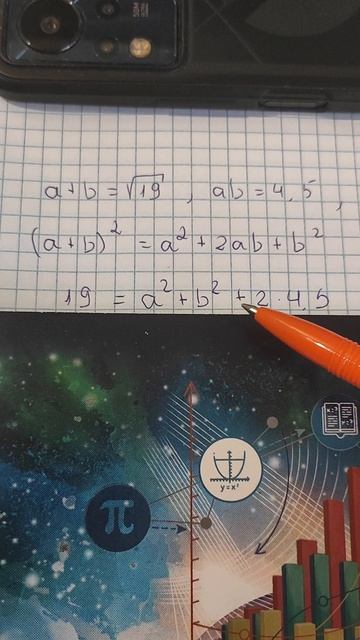 50M
a+b = √19 , ab = 4,5 ,
(a+b)² = a² + 2ab + b²
19 = a² + b² + 2 · 4,5
y=x²
π